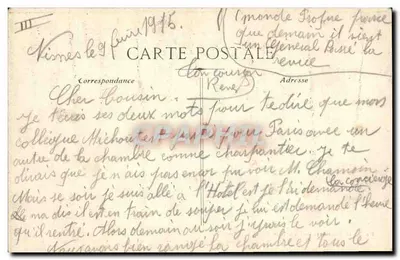 III
Nimes le 9 Juin 1915
1 monde Profue
que demain il vient
un General passé la
revue
CARTE POSTALE
Ton cousin
René
Correspondance
Adresse
Cher Cousin.
Je t'écris ses deux mots pour te dire que mon
collègue Michou est pour Paris avec un
autre de la chambre comme charpentier. Je te
dirais que je n'ais pas encor pu voir M. Chamson
la concierge
Mais se soir je suis allé a l'Hotel est je l'ai demandé
Il ma dis il est en train de souper je lui est demandé l'heure
qu'il rentre. Alors demain au soir j'irais le voir.
Nous avons bien rangé la chambre et tous le